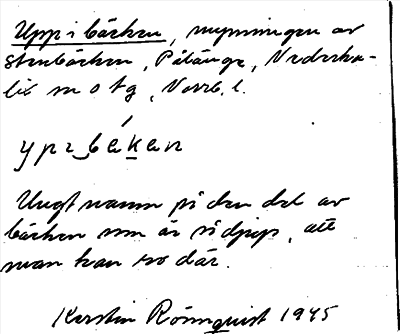 Upp i bäcken, mynningen av
Stenbäcken, Pålänge, Nederka-
lix sn o tg, Norrb. l.
ypɪ bɛ́ken
Ungt namn på den del av
bäcken som är så djup, att
man kan ro där.
Kerstin Rönnquist 1945